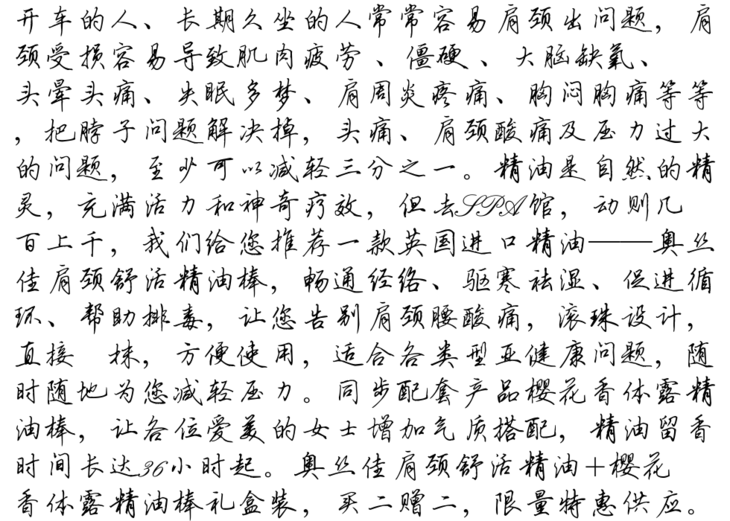 开车的人、长期久坐的人常常容易肩颈出问题，肩
颈受损容易导致肌肉疲劳、僵硬、大脑缺氧、
头晕头痛、失眠多梦、肩周炎疼痛、胸闷胸痛等等
，把脖子问题解决掉，头痛、肩颈酸痛及压力过大
的问题，至少可以减轻三分之一。精油是自然的精
灵，充满活力和神奇疗效，但去SPA馆，动则几
百上千，我们给您推荐一款英国进口精油——奥丝
佳肩颈舒活精油棒，畅通经络、驱寒祛湿、促进循
环、帮助排毒，让您告别肩颈腰酸痛，滚珠设计，
直接　抹，方便使用，适合各类型亚健康问题，随
时随地为您减轻压力。同步配套产品樱花香体露精
油棒，让各位爱美的女士增加气质搭配，精油留香
时间长达36小时起。奥丝佳肩颈舒活精油+樱花
香体露精油棒礼盒装，买二赠二，限量特惠供应。